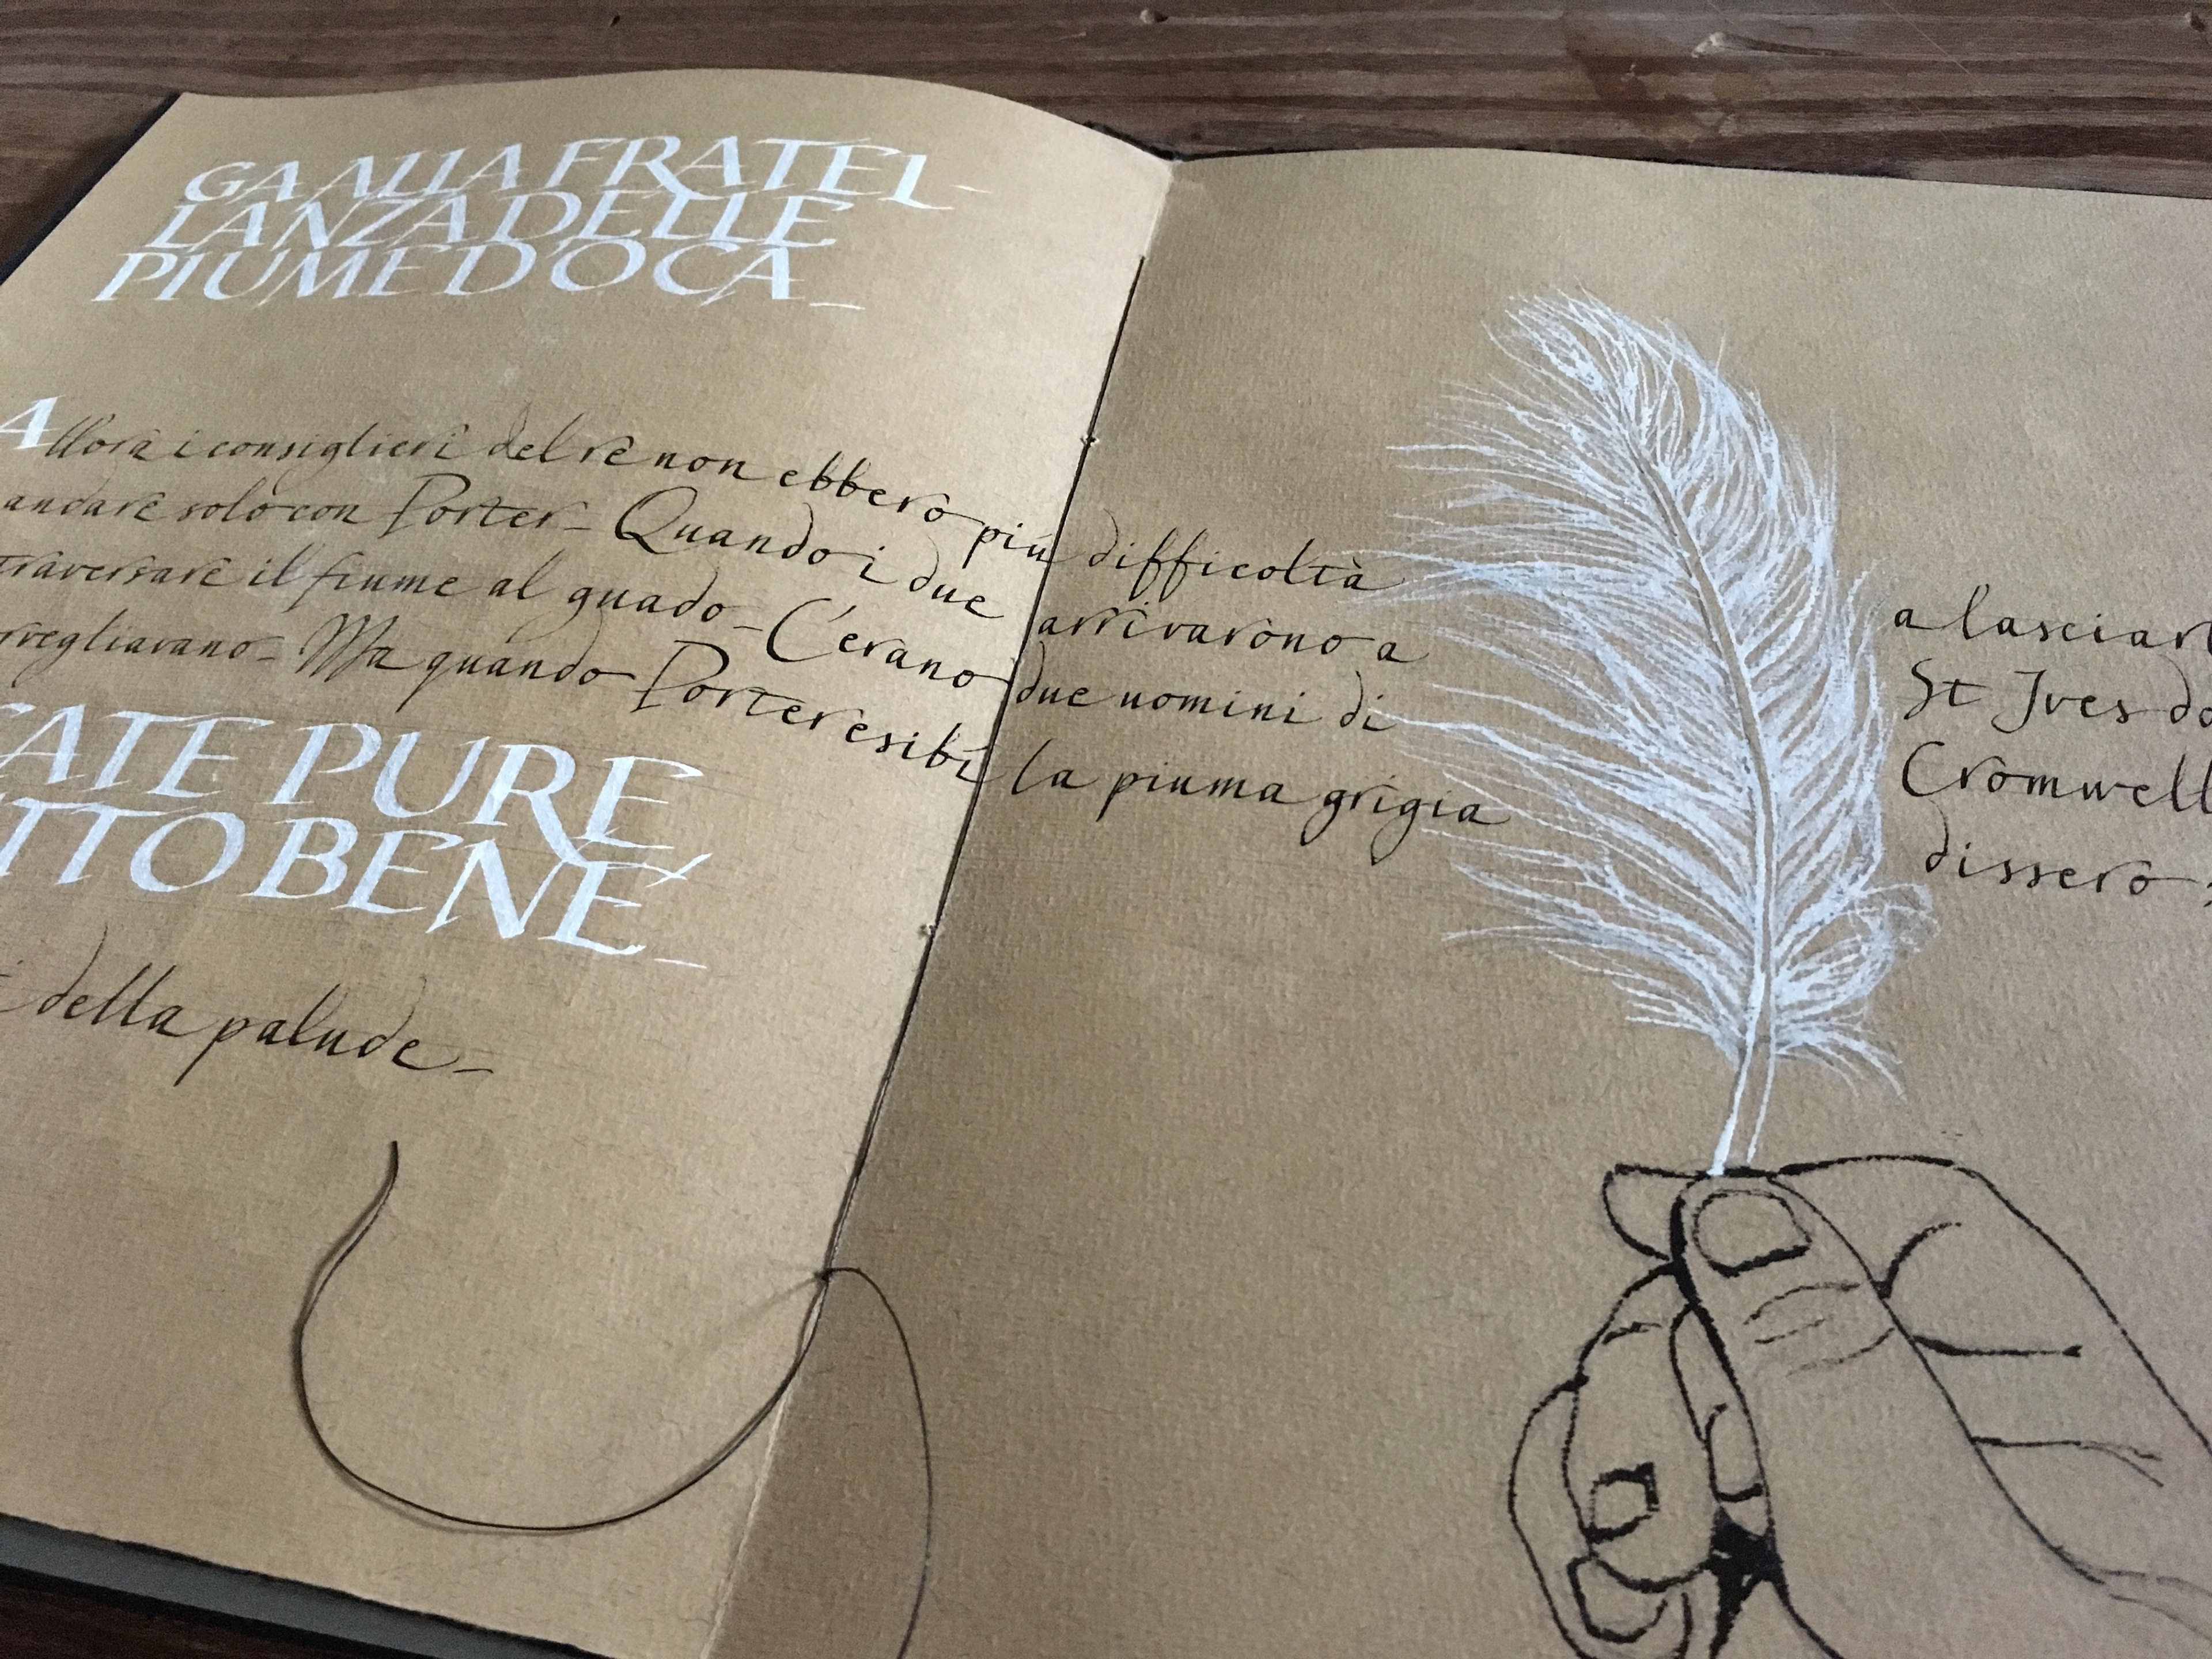 GA ALLA FRATEL-
LANZA DELLE
PIUME D'OCA_
Allora i consiglieri del re non ebbero più difficoltà a lasciar
andare solo con Porter_ Quando i due arrivarono a St Ives do
traversare il fiume al guado_ C'erano due uomini di Cromwell
rvegliavano_ Ma quando Porter esibì la piuma grigia dissero:
CATE PURE
TTO BENE_
della palude_